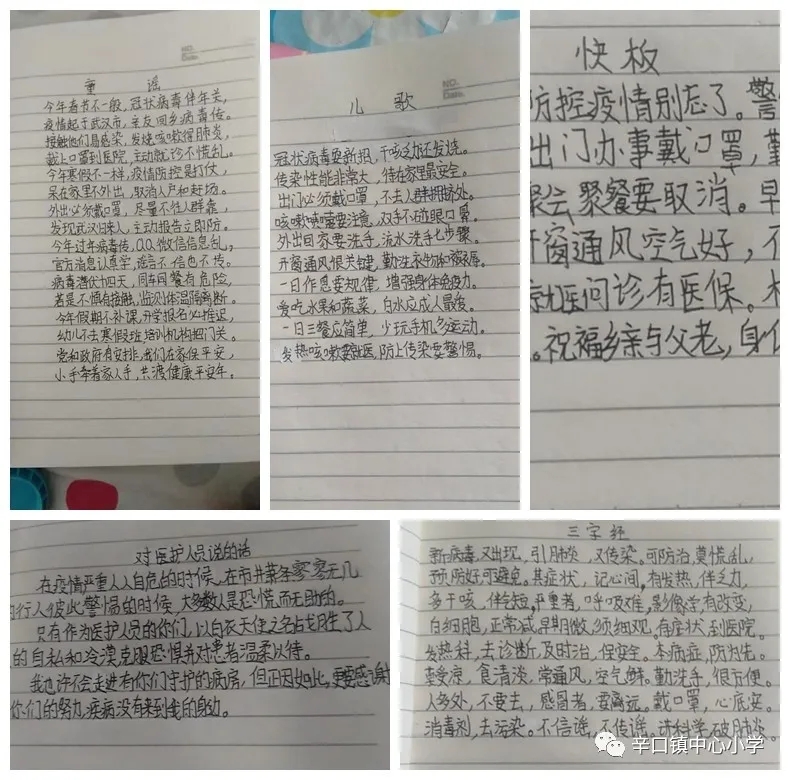 NO.
童 谣
今年春节不一般,冠状病毒伴年关,
疫情起于武汉市,亲友回乡病毒传。
接触他们易感染,发烧咳嗽得肺炎,
戴上口罩到医院,主动就诊不慌乱。
今年寒假不一样,疫情防控是打仗,
呆在家里不外出,取消入户和赶场。
外出必须戴口罩,尽量不往人群靠,
发现武汉归来人,主动报告立即防。
今年过年病毒传,QQ微信信息乱,
官方消息认真学,谣言不信也不传。
病毒潜伏十四天,同车同餐有危险,
若是不慎有接触,监测体温隔离断。
今年假期不补课,开学报名必推迟,
幼儿不去寒假班,培训机构把门关。
党和政府有安排,我们在家保平安,
小手牵着家人手,共渡健康平安年。
NO.
Date.
儿 歌
冠状病毒要新把,干咳乏力还发烧。
传染性能非常大,待在家里最安全。
出门必须戴口罩,不去人群拥挤处。
咳嗽喷嚏需要注意,双手不碰眼口鼻。
外出回家要洗手,流水洗手七步骤。
开窗通风很关键,勤洗衣物和被褥。
一日作息要规律,增强身体免疫力。
爱吃水果和蔬菜,白水应成人最爱。
一日三餐应简单,少玩手机多运动。
发热咳嗽要就医,防止传染要警惕。
快板
防控疫情别忘了。警
出门办事戴口罩,勤
聚会聚餐要取消。早
开窗通风空气好,不
就医问诊有医保。
。祝福乡亲与父老,身
对医护人员说的话
在疫情严重人人自危的时候,在市井萧条寥寥无几
的行人彼此警惕的时候,大多数人是恐慌而无助的。
只有作为医护人员的你们,以白衣天使之名战胜了人
的自私和冷漠克服恐惧并对患者温柔以待。
我也许不会走进有你们守护的病房,但正因如此,更要感谢
你们的努力,疾病没有来到我的身边。
三字经
新病毒,又出现,引肺炎,又传染。可防治,莫慌乱,
预防好,可避免。其症状,记心间,有发热,伴乏力,
多干咳,伴气短,严重者,呼吸难,影像学,有改变,
白细胞,正常减,早期微,须细观。有症状,到医院。
发热科,去诊断,及时治,保安全。本病症,防为先。
莫受凉,食清淡,常通风,空气鲜。勤洗手,很方便。
人多处,不要去,感冒者,要离远。戴口罩,心底安。
消毒剂,去污染。不信谣,不传谣。讲科学,破肺炎。
辛口镇中心小学